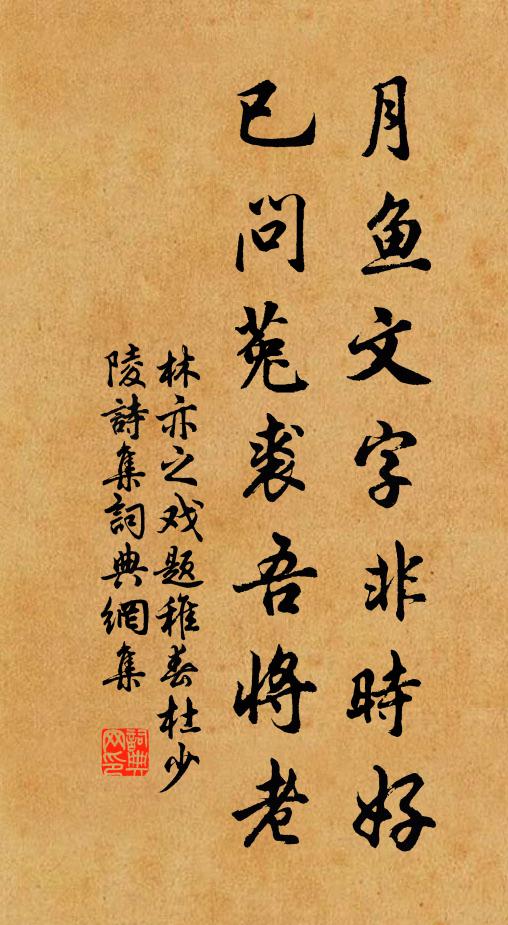 月鱼文字非時好
已問菟裘吾將老
林亦之戏題稚春杜少
陵詩集詞典網集
詞典
网印